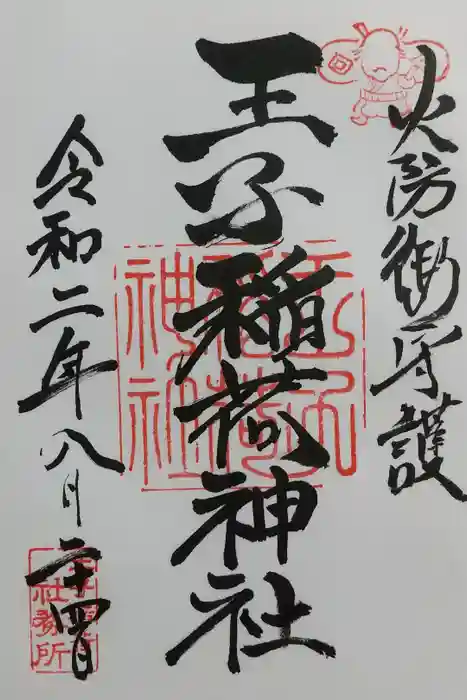 火防御守護
王子稲荷神社
令和二年八月二十四日
王子
稲荷
神社
社務所